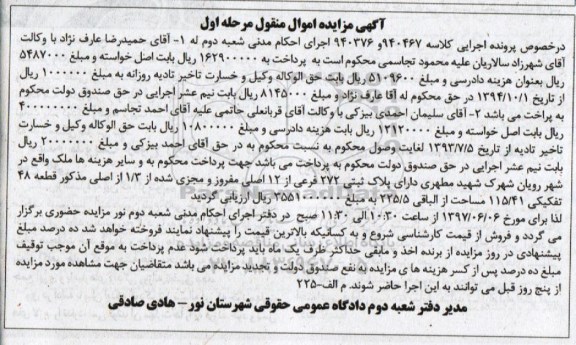 آگهی مزایده اموال منقول مرحله اول
درخصوص پرونده اجرایی کلاسه ۹۴۰۴۶۷ و ۹۴۰۳۷۶ اجرای احکام مدنی شعبه دوم له ۱- آقای حمیدرضا عارف نژاد با وکالت
آقای شهرزاد سالاریان علیه محمود تجاسمی محکوم است به پرداخت به ۱۶۲۹۰۰۰۰۰ ریال بابت اصل خواسته و مبلغ ۵۴۸۷۰۰۰
ریال بعنوان هزینه دادرسی و مبلغ ۵۱۰۹۶۰۰ ریال بابت حق الوکاله وکیل و خسارت تاخیر تادیه روزانه به مبلغ ۱۰۰۰۰۰۰ ریال
از تاریخ ۱۳۹۴/۱۰/۱ در حق محکوم له آقا عارف نژاد و مبلغ ۸۱۴۵۰۰۰ ریال بابت نیم عشر اجرایی در حق صندوق دولت محکوم
به پراخت می باشد ۲- آقای سلیمان احمدی بیزکی با وکالت آقای قربانعلی حاتمی علیه آقای احمد تجاسم و مبلغ ۴۰۰۰۰۰۰۰۰
ریال بابت اصل خواسته و مبلغ ۱۳۱۲۰۰۰۰ ریال بابت هزینه دادرسی و مبلغ ۱۰۸۰۰۰۰۰ ریال بابت حق الوکاله وکیل و خسارت
تاخیر تادیه از تاریخ ۱۳۹۳/۷/۵ لغایت وصول محکوم به نسبت محکوم به در حق آقای احمد بیزکی و مبلغ ۲۰۰۰۰۰۰۰ ریال
بابت نیم عشر اجرایی در حق صندوق دولت محکوم به پرداخت می باشد جهت پرداخت محکوم به و سایر هزینه ها ملک واقع در
شهر رویان شهرک شهید مطهری دارای پلاک ثبتی ۲۷۲ فرعی از ۱۲ اصلی مفروز و مجزی شده از ۱/۳ از اصلی مذکور قطعه ۴۸
تفکیکی ۱۱۵/۴۱ مساحت از الباقی ۲۲۵/۵ به مبلغ ۳۵۵۱۰۰۰۰۰۰ ریال ارزیابی گردید
لذا برای مورخ ۱۳۹۷/۰۶/۰۶ از ساعت ۱۰:۳۰ الی ۱۱:۳۰ صبح در دفتر اجرای احکام مدنی شعبه دوم نور مزایده حضوری برگزار
می گردد و فروش از قیمت کارشناسی شروع و به کسانیکه بالاترین قیمت را پیشنهاد نمایند فروخته خواهد شد ده درصد مبلغ
پیشنهادی در روز مزایده از برنده اخذ و مابقی حداکثر ظرف یک ماه باید پرداخت شود عدم پرداخت به موقع آن موجب توقیف
مبلغ ده درصد پس از کسر هزینه ها ی مزایده به نفع صندوق دولت و تجدید مزایده می باشد متقاضیان جهت مشاهده مورد مزایده
از پنج روز قبل می توانند به این اجرا حاضر شوند. م الف-۲۲۵
مدیر دفتر شعبه دوم دادگاه عمومی حقوقی شهرستان نور - هادی صادقی